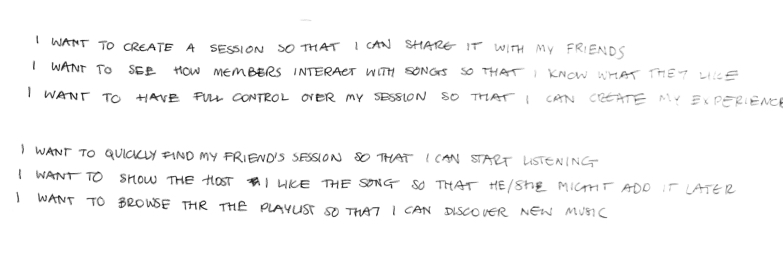 I WANT TO CREATE A SESSION SO THAT I CAN SHARE IT WITH MY FRIENDS
I WANT TO SEE HOW MEMBERS INTERACT WITH SONGS SO THAT I KNOW WHAT THEY LIKE
I WANT TO HAVE FULL CONTROL OVER MY SESSION SO THAT I CAN CREATE MY EXPERIENCE
I WANT TO QUICKLY FIND MY FRIEND'S SESSION SO THAT I CAN START LISTENING
I WANT TO SHOW THE HOST I LIKE THE SONG SO THAT HE/SHE MIGHT ADD IT LATER
I WANT TO BROWSE THR THE PLAYLIST SO THAT I CAN DISCOVER NEW MUSIC